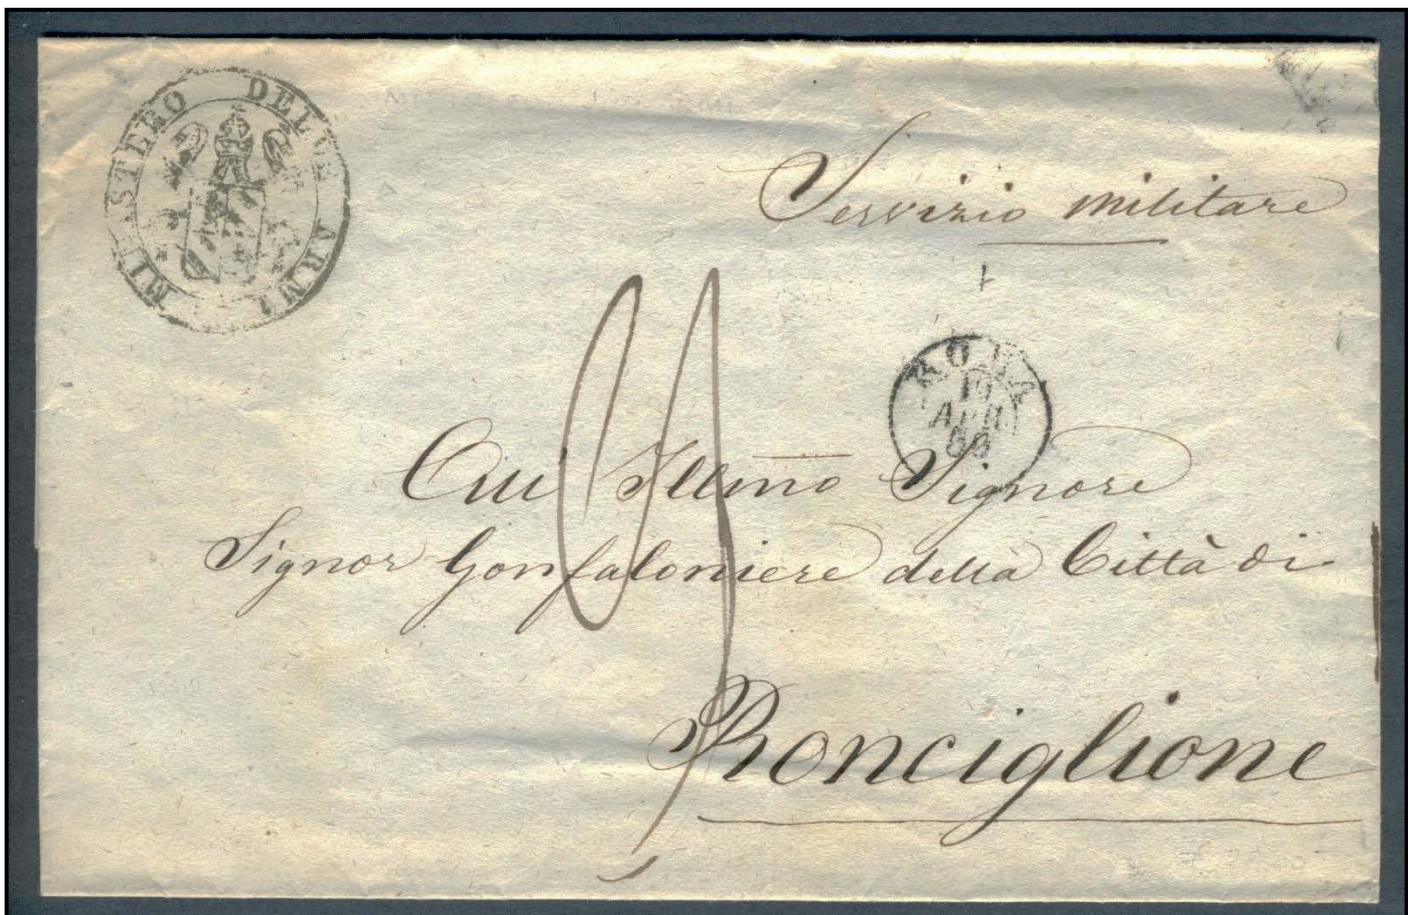 MINISTERO DELLE ARMI
Servizio militare
ROMA
19
APR
Illmo Signore
Signor Gonfaloniere della Città di
Ronciglione